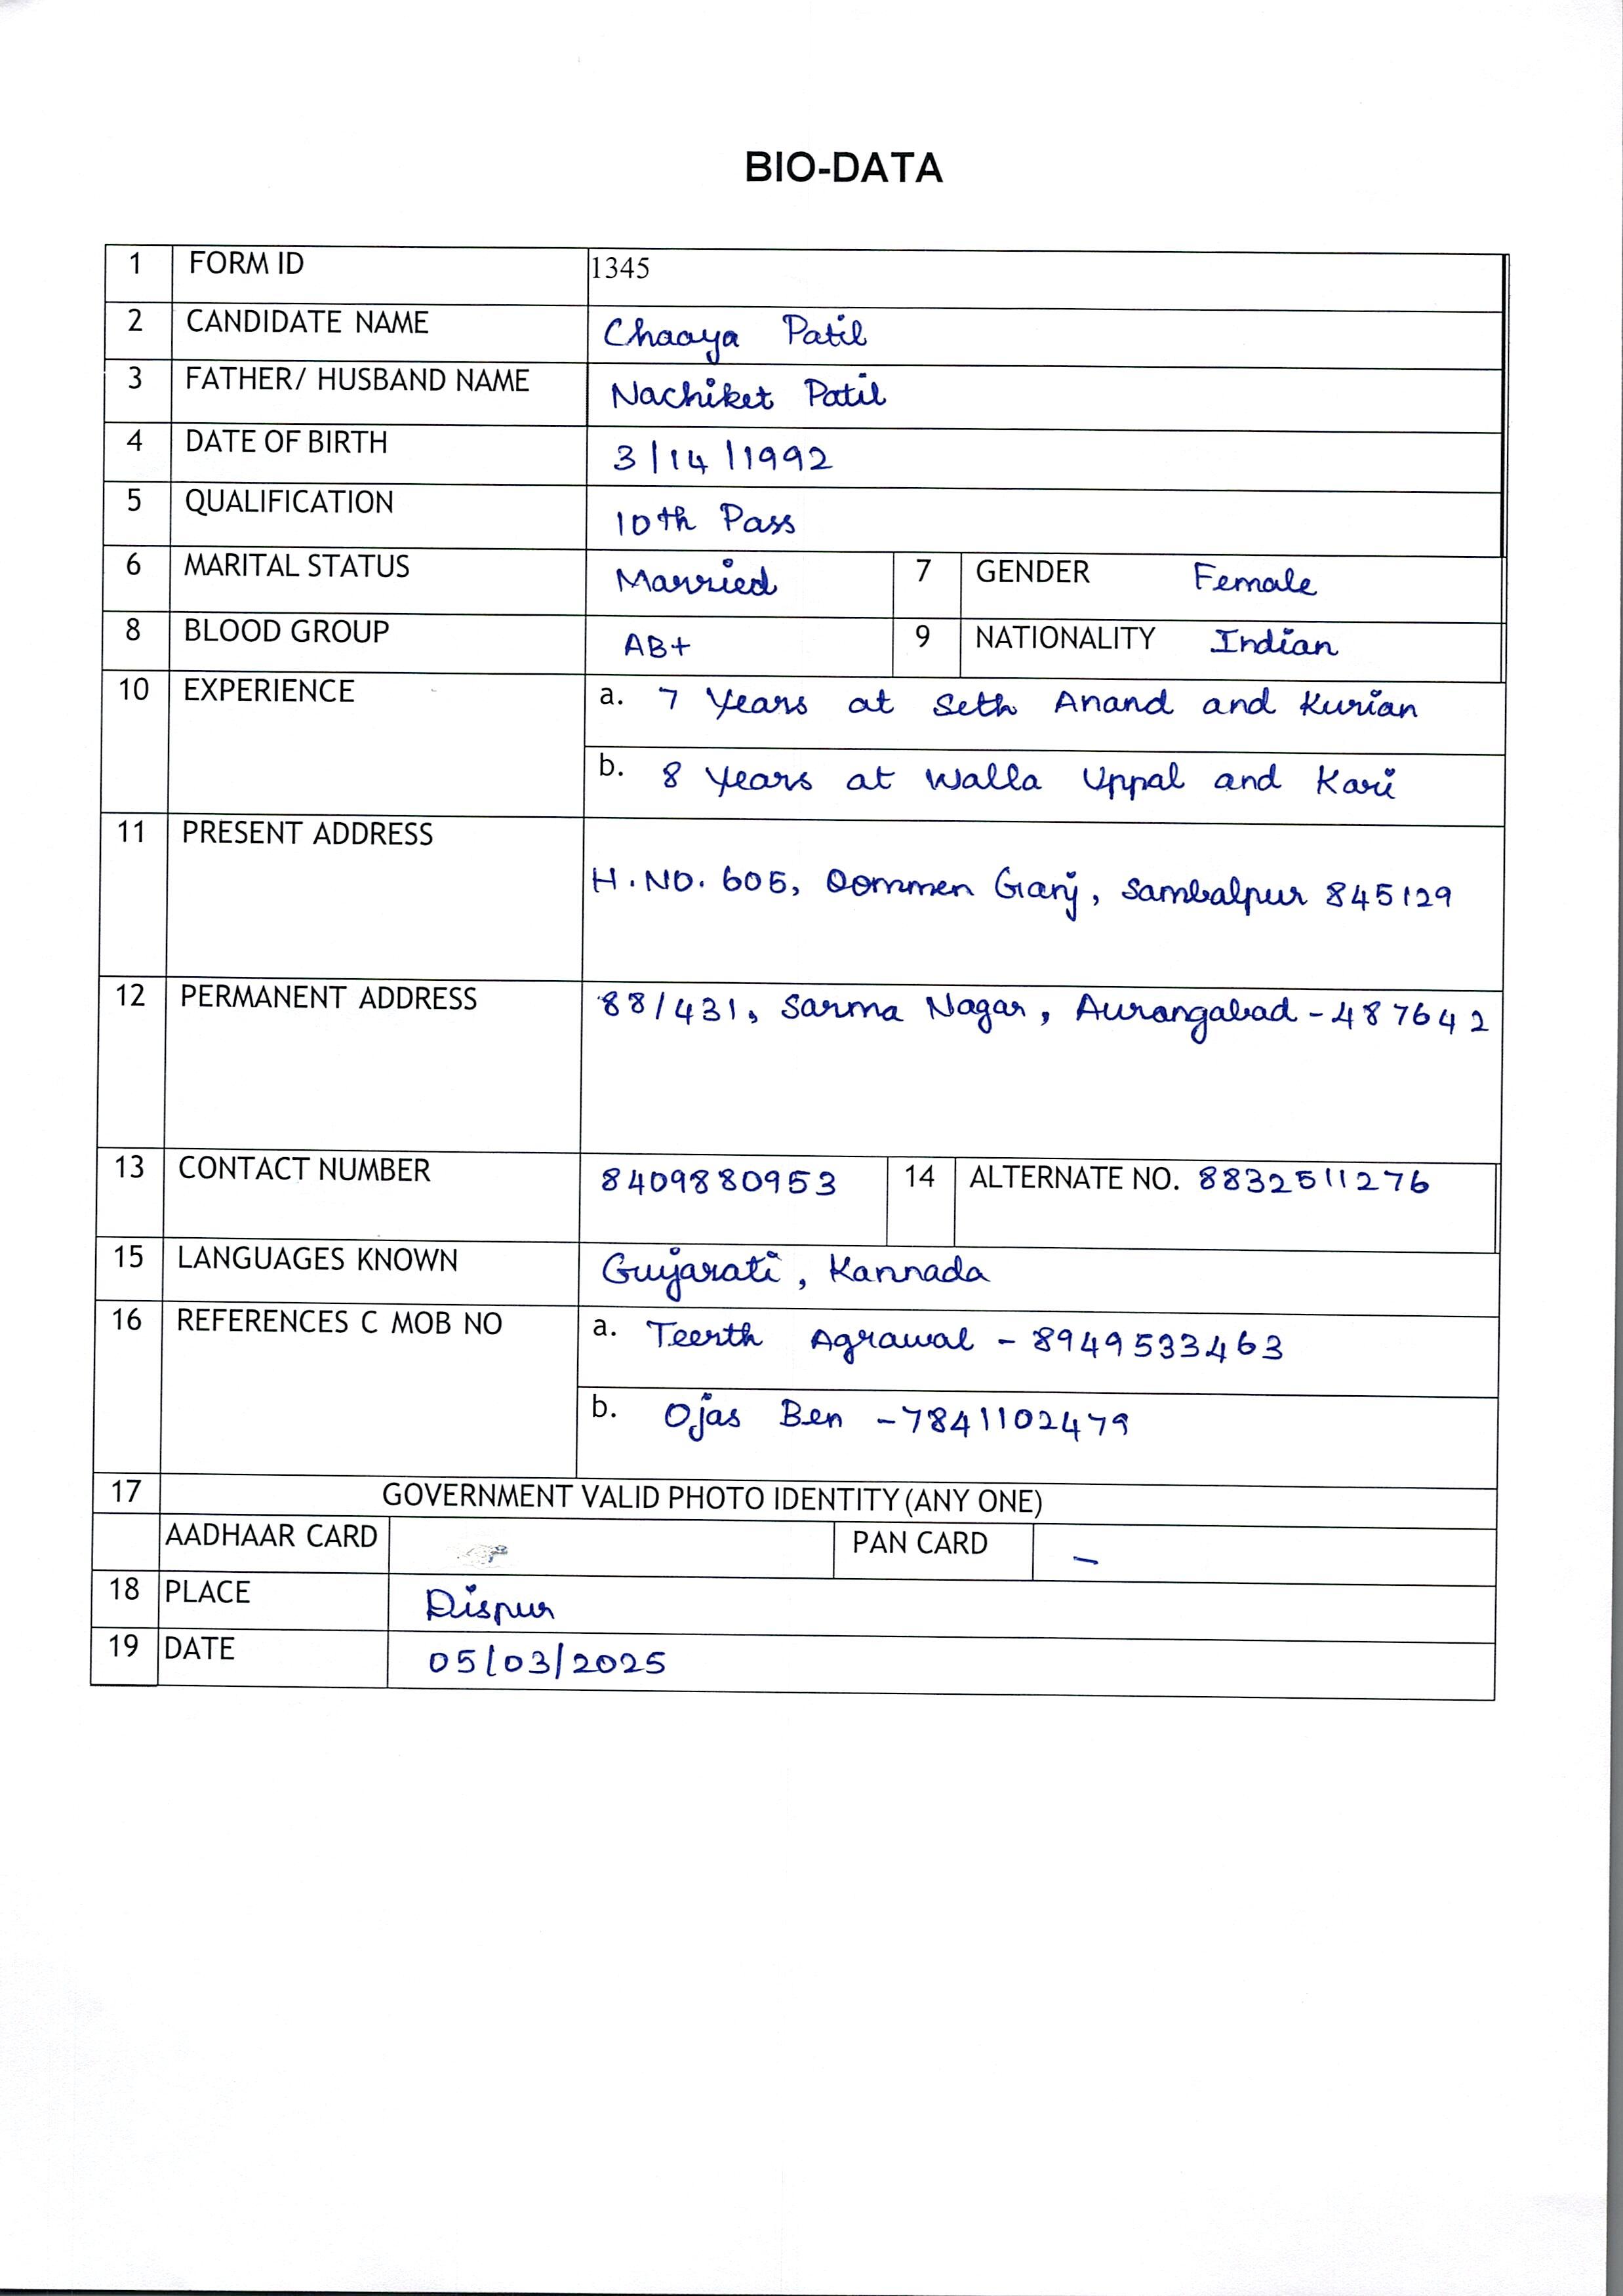 BIO-DATA
1 FORM ID 1345
2 CANDIDATE NAME Chaaya Patil
3 FATHER/ HUSBAND NAME Nachiket Patil
4 DATE OF BIRTH 3/14/1992
5 QUALIFICATION 10th Pass
6 MARITAL STATUS Married 7 GENDER Female
8 BLOOD GROUP AB+ 9 NATIONALITY Indian
10 EXPERIENCE a. 7 Years at Seth Anand and Kurian
b. 8 Years at Walla Uppal and Kari
11 PRESENT ADDRESS
H.NO. 605, Oommen Ganj, Sambalpur 845129
12 PERMANENT ADDRESS 88/431, Sarma Nagar, Aurangabad - 487642
13 CONTACT NUMBER 8409880953 14 ALTERNATE NO. 8832511276
15 LANGUAGES KNOWN Gujarati, Kannada
16 REFERENCES C MOB NO a. Teerth Agrawal - 8949533463
b. Ojas Ben - 7841102479
17 GOVERNMENT VALID PHOTO IDENTITY (ANY ONE)
AADHAAR CARD PAN CARD -
18 PLACE Dispur
19 DATE 05/03/2025